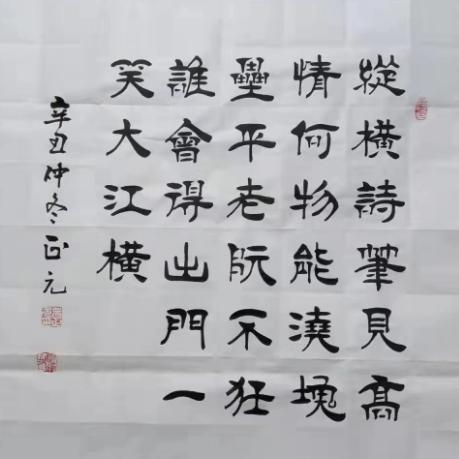 縱橫詩筆見高
情何物能澆塊
壘平老阮不狂
誰會得出門一
笑大江橫
辛丑仲冬正元